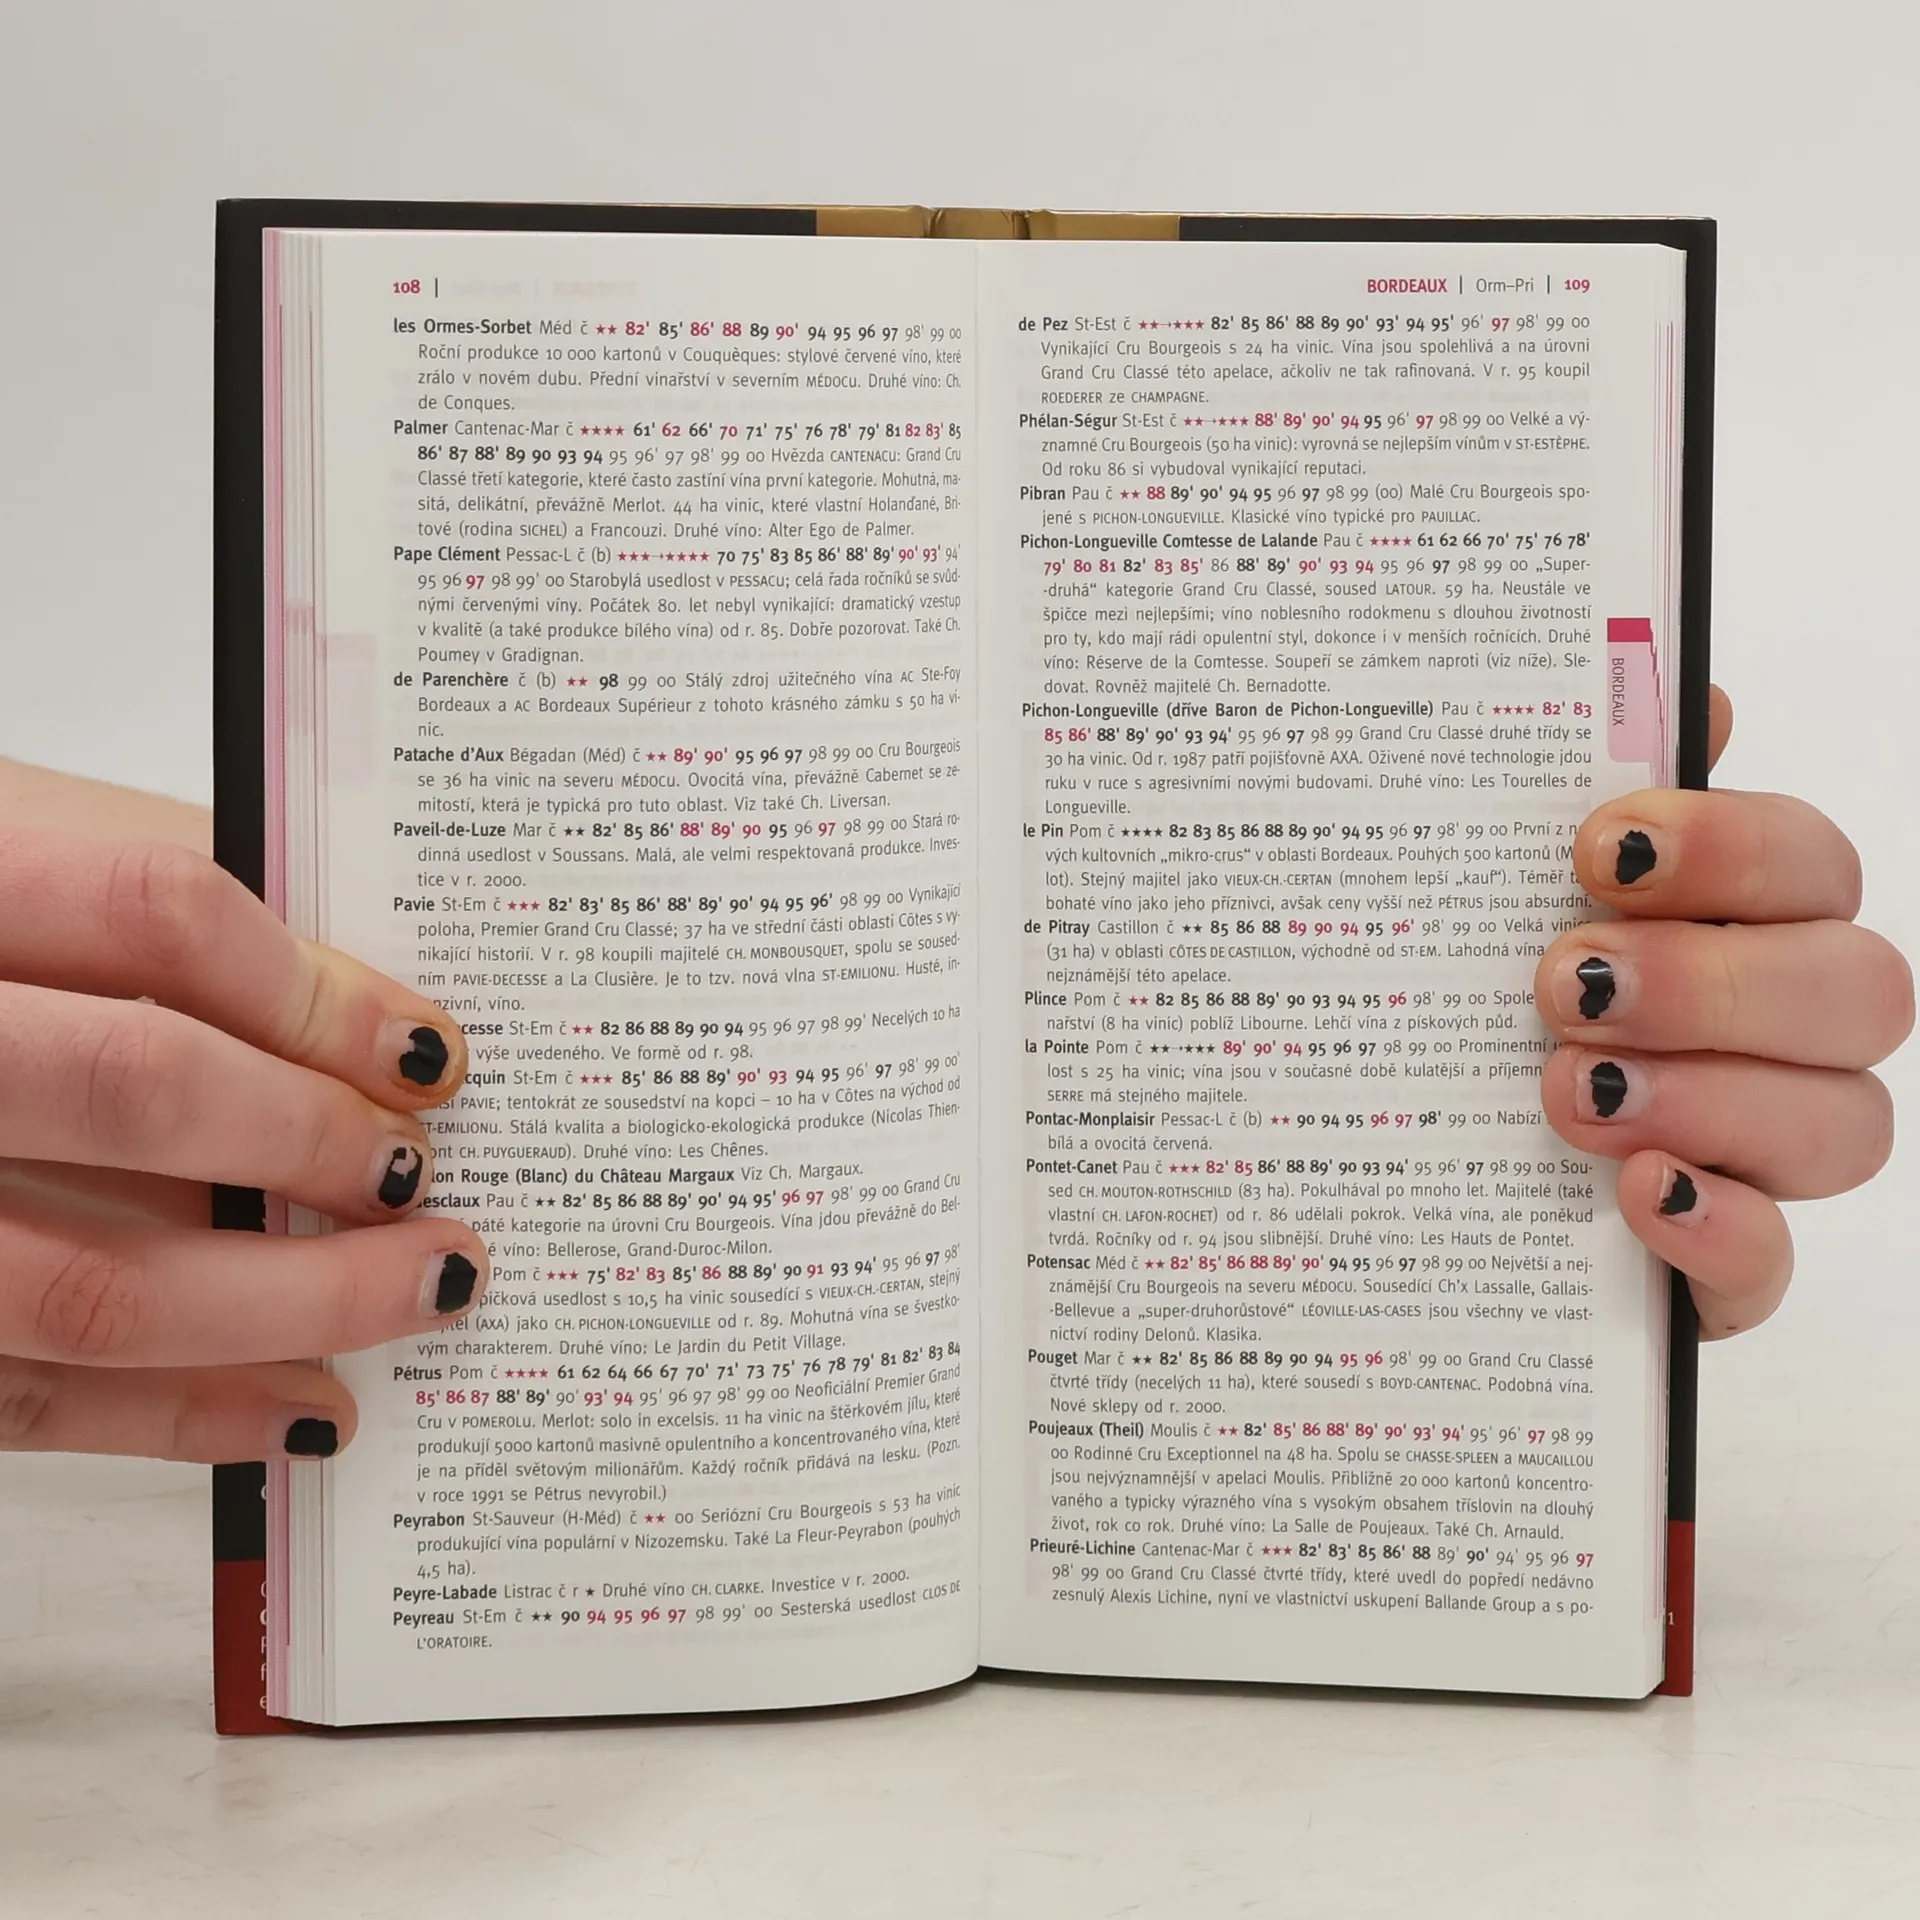 108 |
les Ormes-Sorbet Méd č ★★ 82' 85' 86' 88 89 90' 94 95 96 97 98' 99 00
Roční produkce 10 000 kartonů v Couquèques: stylové červené víno, které
zrálo v novém dubu. Přední vinařství v severním MÉDOCU. Druhé víno: Ch.
de Conques.
Palmer Cantenac-Mar č ★★★★ 61' 62 66' 70 71' 75' 76 78' 79' 81 82 83' 85
86' 87 88' 89 90 93 94 95 96' 97 98' 99 00 Hvězda CANTENACU: Grand Cru
Classé třetí kategorie, které často zastíní vína první kategorie. Mohutná, ma-
sitá, delikátní, převážně Merlot. 44 ha vinic, které vlastní Holanďané, Bri-
tové (rodina SICHEL) a Francouzi. Druhé víno: Alter Ego de Palmer.
Pape Clément Pessac-L č (b) ★★★→★★★★ 70 75' 83 85 86' 88' 89' 90' 93' 94'
95 96 97 98 99' 00 Starobylá usedlost v PESSACU; celá řada ročníků se svůd-
nými červenými víny. Počátek 80. let nebyl vynikající: dramatický vzestup
v kvalitě (a také produkce bílého vína) od r. 85. Dobře pozorovat. Také Ch.
Poumey v Gradignan.
de Parenchère č (b) ★★ 98 99 00 Stálý zdroj užitečného vína AC Ste-Foy
Bordeaux a AC Bordeaux Supérieur z tohoto krásného zámku s 50 ha vi-
nic.
Patache d'Aux Bégadan (Méd) č ★★ 89' 90' 95 96 97 98 99 00 Cru Bourgeois
se 36 ha vinic na severu MÉDOCU. Ovocitá vína, převážně Cabernet se ze-
mitostí, která je typická pro tuto oblast. Viz také Ch. Liversan.
Paveil-de-Luze Mar č ★★ 82' 85 86' 88' 89' 90 95 96 97 98 99 00 Stará ro-
dinná usedlost v Soussans. Malá, ale velmi respektovaná produkce. Inves-
tice v r. 2000.
Pavie St-Em č ★★★ 82' 83' 85 86' 88' 89' 90' 94 95 96' 98 99 00 Vynikající
poloha, Premier Grand Cru Classé; 37 ha ve střední části oblasti Côtes s vy-
nikající historií. V r. 98 koupili majitelé CH. MONBOUSQUET, spolu se soused-
ním PAVIE-DECESSE a La Clusière. Je to tzv. nová vlna ST-EMILIONU. Husté, in-
nzivní, víno.
cesse St-Em č ★★ 82 86 88 89 90 94 95 96 97 98 99' Necelých 10 ha
výše uvedeného. Ve formě od r. 98.
cquin St-Em č ★★★ 85' 86 88 89' 90' 93 94 95 96' 97 98' 99 00'
PAVIE; tentokrát ze sousedství na kopci – 10 ha v Côtes na východ od
ST-EMILIONU. Stálá kvalita a biologicko-ekologická produkce (Nicolas Thien-
ont CH. PUYGUERAUD). Druhé víno: Les Chênes.
lon Rouge (Blanc) du Château Margaux Viz Ch. Margaux.
esclaux Pau č ★★ 82' 85 86 88 89' 90' 94 95' 96 97 98' 99 00 Grand Cru
páté kategorie na úrovni Cru Bourgeois. Vína jdou převážně do Bel-
é víno: Bellerose, Grand-Duroc-Milon.
Pom č ★★★ 75' 82' 83 85' 86 88 89' 90 91 93 94' 95 96 97 98'
pičková usedlost s 10,5 ha vinic sousedící s VIEUX-CH.-CERTAN, stejný
tel (AXA) jako CH. PICHON-LONGUEVILLE od r. 89. Mohutná vína se švestko-
vým charakterem. Druhé víno: Le Jardin du Petit Village.
Pétrus Pom č ★★★★ 61 62 64 66 67 70' 71' 73 75' 76 78 79' 81 82' 83 84
85' 86 87 88' 89' 90' 93' 94 95' 96 97 98' 99 00 Neoficiální Premier Grand
Cru v POMEROLU. Merlot: solo in excelsis. 11 ha vinic na štěrkovém jílu, které
produkují 5000 kartonů masivně opulentního a koncentrovaného vína, které
je na příděl světovým milionářům. Každý ročník přidává na lesku. (Pozn.
v roce 1991 se Pétrus nevyrobil.)
Peyrabon St-Sauveur (H-Méd) č ★★ 00 Seriózní Cru Bourgeois s 53 ha vinic
produkující vína populární v Nizozemsku. Také La Fleur-Peyrabon (pouhých
4,5 ha).
Peyre-Labade Listrac č r ★ Druhé víno CH. CLARKE. Investice v r. 2000.
Peyreau St-Em č ★★ 90 94 95 96 97 98 99' 00 Sesterská usedlost CLOS DE
L'ORATOIRE.
BORDEAUX | Orm–Pri | 109
de Pez St-Est č ★★→★★★ 82' 85 86' 88 89 90' 93' 94 95' 96' 97 98' 99 00
Vynikající Cru Bourgeois s 24 ha vinic. Vína jsou spolehlivá a na úrovni
Grand Cru Classé této apelace, ačkoliv ne tak rafinovaná. V r. 95 koupil
ROEDERER ze CHAMPAGNE.
Phélan-Ségur St-Est č ★★→★★★ 88' 89' 90' 94 95 96' 97 98 99 00 Velké a vý-
znamné Cru Bourgeois (50 ha vinic): vyrovná se nejlepším vínům v ST-ESTÈPHE.
Od roku 86 si vybudoval vynikající reputaci.
Pibran Pau č ★★ 88 89' 90' 94 95 96 97 98 99 (00) Malé Cru Bourgeois spo-
jené s PICHON-LONGUEVILLE. Klasické víno typické pro PAUILLAC.
Pichon-Longueville Comtesse de Lalande Pau č ★★★★ 61 62 66 70' 75' 76 78'
79' 80 81 82' 83 85' 86 88' 89' 90' 93 94 95 96 97 98 99 00 „Super-
-druhá“ kategorie Grand Cru Classé, soused LATOUR. 59 ha. Neustále ve
špičce mezi nejlepšími; víno noblesního rodokmenu s dlouhou životností
pro ty, kdo mají rádi opulentní styl, dokonce i v menších ročnících. Druhé
víno: Réserve de la Comtesse. Soupeří se zámkem naproti (viz níže). Sle-
dovat. Rovněž majitelé Ch. Bernadotte.
Pichon-Longueville (dříve Baron de Pichon-Longueville) Pau č ★★★★ 82' 83
85 86' 88' 89' 90' 93 94' 95 96 97 98 99 Grand Cru Classé druhé třídy se
30 ha vinic. Od r. 1987 patří pojišťovně AXA. Oživené nové technologie jdou
ruku v ruce s agresivními novými budovami. Druhé víno: Les Tourelles de
Longueville.
le Pin Pom č ★★★★ 82 83 85 86 88 89 90' 94 95 96 97 98' 99 00 První z n
vých kultovních „mikro-crus“ v oblasti Bordeaux. Pouhých 500 kartonů (M
lot). Stejný majitel jako VIEUX-CH.-CERTAN (mnohem lepší „kauf“). Téměř t
bohaté víno jako jeho příznivci, avšak ceny vyšší než PÉTRUS jsou absurdní.
de Pitray Castillon č ★★ 85 86 88 89 90 94 95 96' 98' 99 00 Velká vinice
(31 ha) v oblasti CÔTES DE CASTILLON, východně od ST-EM. Lahodná vína
nejznámější této apelace.
Plince Pom č ★★ 82 85 86 88 89' 90 93 94 95 96 98' 99 00 Spole
nařství (8 ha vinic) poblíž Libourne. Lehčí vína z pískových půd.
la Pointe Pom č ★★→★★★ 89' 90' 94 95 96 97 98 99 00 Prominentní
lost s 25 ha vinic; vína jsou v současné době kulatější a příjemn
SERRE má stejného majitele.
Pontac-Monplaisir Pessac-L č (b) ★★ 90 94 95 96 97 98' 99 00 Nabízí
bílá a ovocitá červená.
Pontet-Canet Pau č ★★★ 82' 85 86' 88 89' 90 93 94' 95 96' 97 98 99 00 Sou-
sed CH. MOUTON-ROTHSCHILD (83 ha). Pokulhával po mnoho let. Majitelé (také
vlastní CH. LAFON-ROCHET) od r. 86 udělali pokrok. Velká vína, ale poněkud
tvrdá. Ročníky od r. 94 jsou slibnější. Druhé víno: Les Hauts de Pontet.
Potensac Méd č ★★ 82' 85' 86 88 89' 90' 94 95 96 97 98 99 00 Největší a nej-
známější Cru Bourgeois na severu MÉDOCU. Sousedící Ch'x Lassalle, Gallais-
-Bellevue a „super-druhorůstové“ LÉOVILLE-LAS-CASES jsou všechny ve vlast-
nictví rodiny Delonů. Klasika.
Pouget Mar č ★★ 82' 85 86 88 89 90 94 95 96 98' 99 00 Grand Cru Classé
čtvrté třídy (necelých 11 ha), které sousedí s BOYD-CANTENAC. Podobná vína.
Nové sklepy od r. 2000.
Poujeaux (Theil) Moulis č ★★ 82' 85' 86 88' 89' 90' 93' 94' 95' 96' 97 98 99
00 Rodinné Cru Exceptionnel na 48 ha. Spolu se CHASSE-SPLEEN a MAUCAILLOU
jsou nejvýznamnější v apelaci Moulis. Přibližně 20 000 kartonů koncentro-
vaného a typicky výrazného vína s vysokým obsahem tříslovin na dlouhý
život, rok co rok. Druhé víno: La Salle de Poujeaux. Také Ch. Arnauld.
Prieuré-Lichine Cantenac-Mar č ★★★ 82' 83' 85 86' 88 89' 90' 94' 95 96 97
98' 99 00 Grand Cru Classé čtvrté třídy, které uvedl do popředí nedávno
zesnulý Alexis Lichine, nyní ve vlastnictví uskupení Ballande Group a s po-
BORDEAUX
1